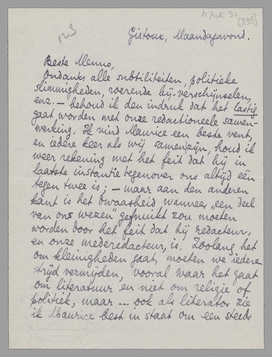 Gistoux, Maandagavond.
Beste Menno,
Ondanks alle subtiliteiten, politieke
slimmigheden, roerende bij-verschijnselen,
enz. – behoud ik den indruk dat het lastig
gaat worden met onze redactioneele samen-
werking. Ik vind Maurice een beste vent,
en iedere keer als wij samenzijn, houd ik
weer rekening met het feit dat hij in
laatste instantie tegenover ons altijd één
tegen twee is; – maar aan den anderen
kant is het dwaasheid wanneer „een deel
van ons wezen" gefnuikt zou moeten
worden door het feit dat hij redacteur,
en onze mederedacteur, is. Zoolang het
om kleinigheden gaat, moeten we iedere
strijd vermijden, vooral waar het gaat
om literatuur en niet om religie of
politiek, maar ... ook als literator zie
ik Maurice best in staat om een steeds